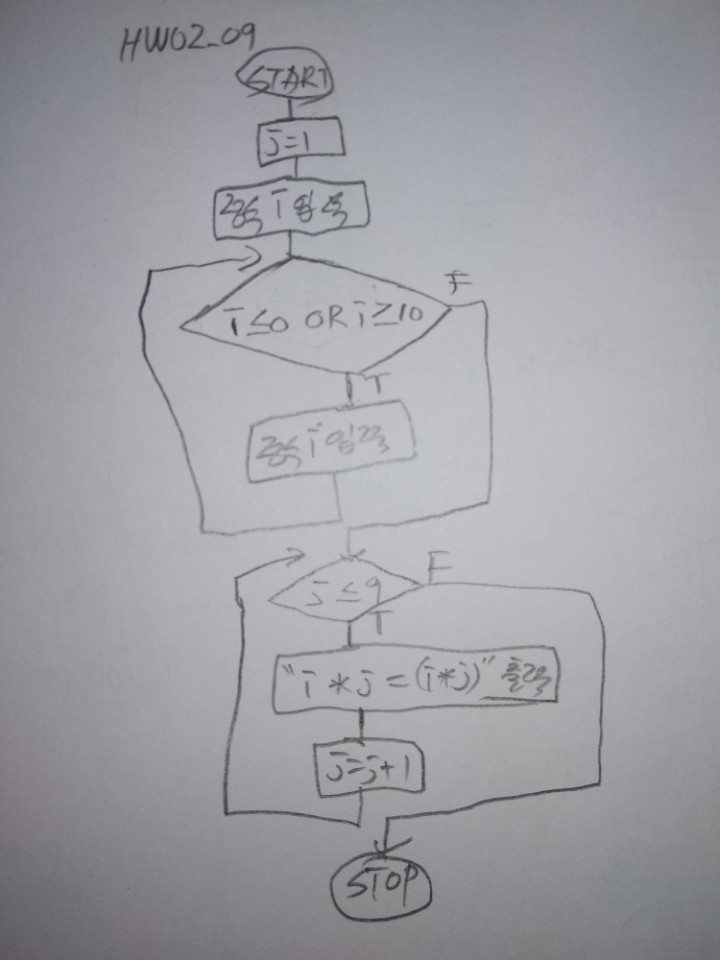 HW02_09
START
j=1
정수 i 입력
i≤0 OR i≥10
F
T
정수 i 입력
j≤9
F
T
"i*j=(i*j)" 출력
j=j+1
STOP